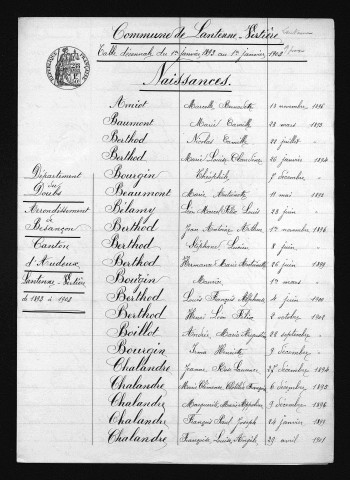 Commune de Lantenne-Vertière
Table décennale du 1er janvier 1893 au 1er janvier 1903
Naissances.
Amiot Marcelle Bernadette 13 novembre 1896
Baumont Marie Camille 23 mars 1893
Berthod Nicolas Camille 21 juillet "
Berthod Marie Louise Claudine 26 janvier 1894
Bourgin 7 décembre "
Beaumont Marie Antoinette 11 mai 1895
Bélamy Léon Marcel Louis 23 juin "
Berthod Jean Antoine 17 novembre 1896
Berthod Stéphanie 8 juin "
Berthod Marie Antoinette 26 juin 1899
Bourgin Maurice 17 mars "
Berthod Louis François Alphonse 4 juin 1900
Berthod Henri Léon Félix 2 octobre
Boillot Andrée Marie Augustine 28 septembre "
Bourgin Irma Henriette 9 décembre "
Chalandre Jeanne Rose 27 décembre 1894
Chalandre Marie François 6 décembre 1895
Chalandre Marguerite Marie 9 décembre 1896
Chalandre François Paul Joseph 24 janvier 1899
Chalandre Françoise Louise 29 avril 1901
Département
du
Doubs
Arrondissement
de
Besançon
Canton
d'Audeux
Lantenne-Vertière
de 1893 à 1903